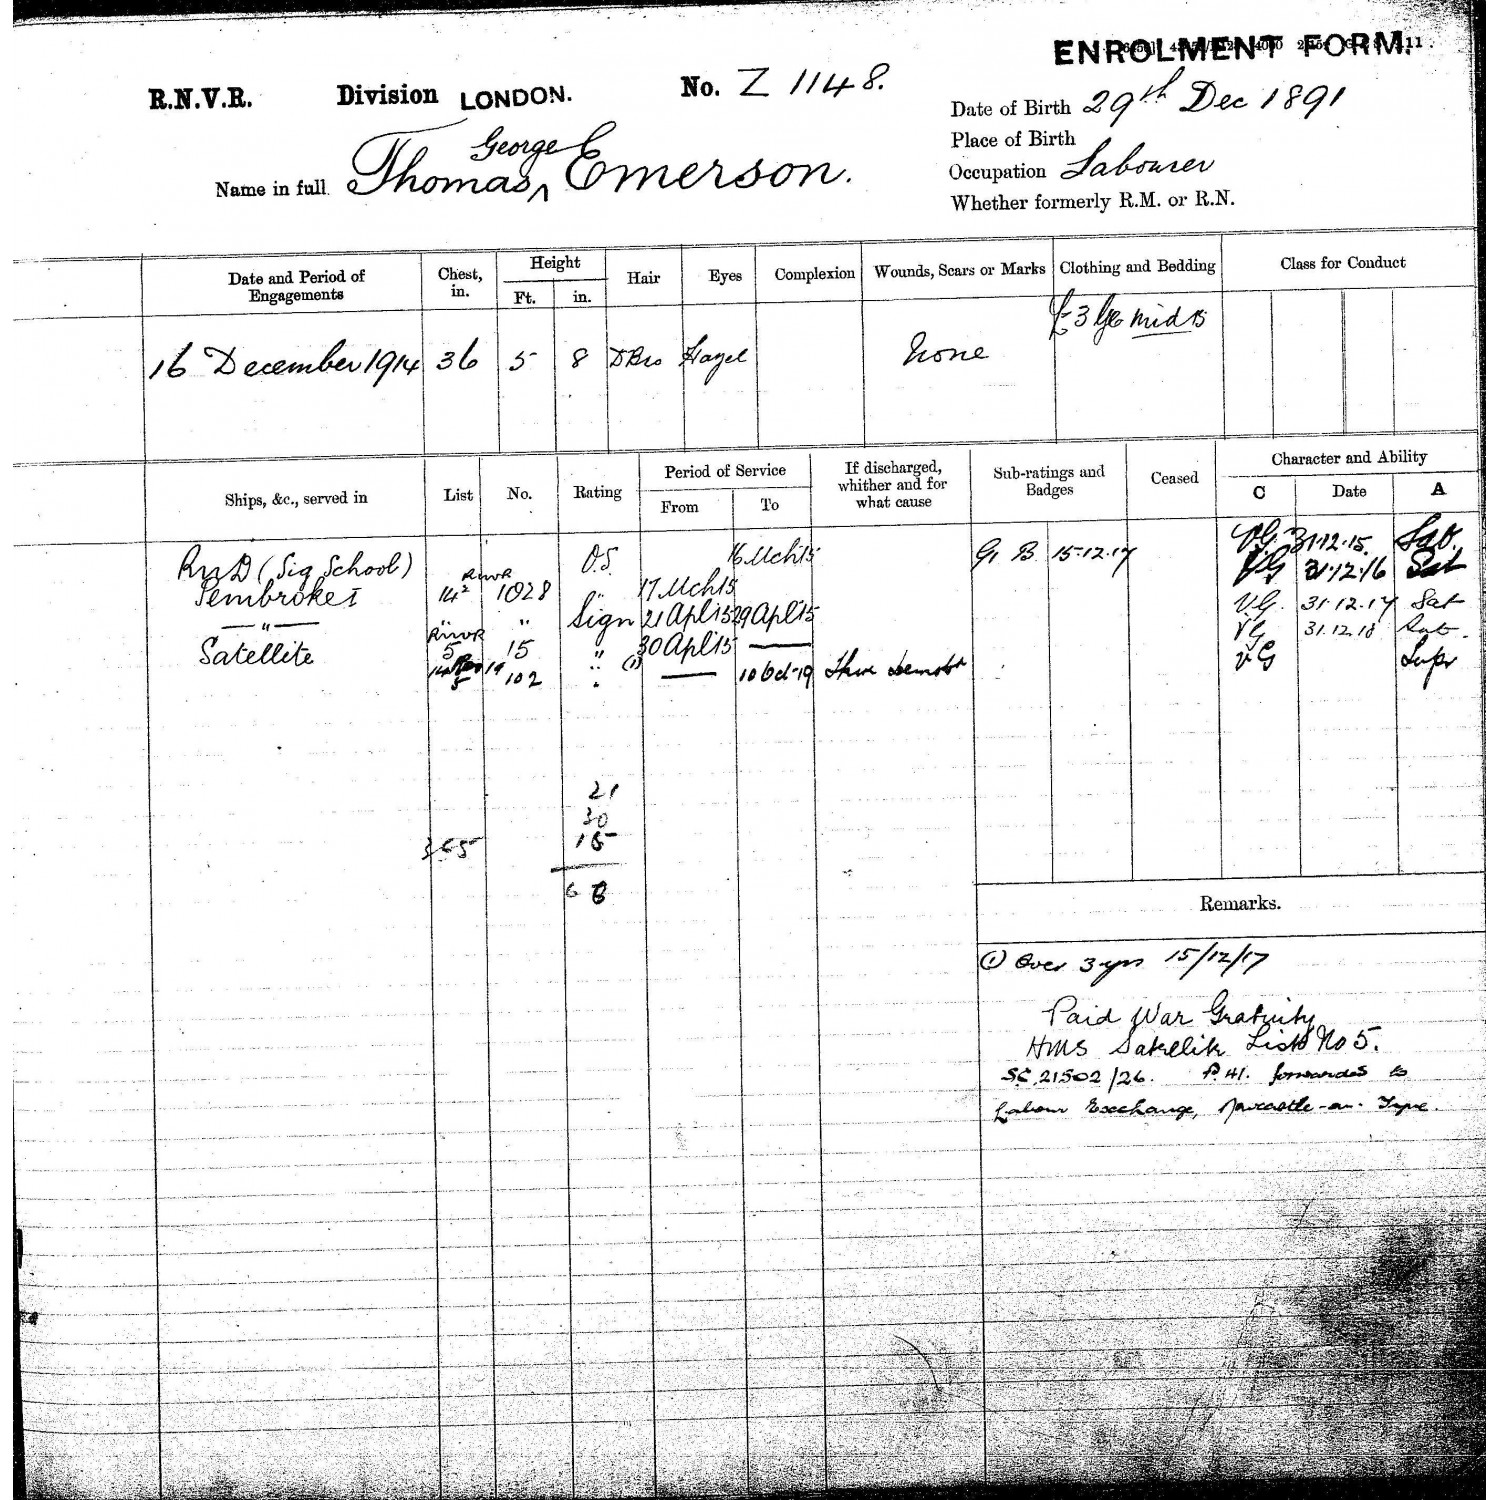 ENROLMENT FORM.
R.N.V.R. Division LONDON. No. Z 1148.
Date of Birth 29th Dec 1891
Place of Birth
Occupation Labourer
Whether formerly R.M. or R.N.
George
Name in full Thomas ^ Emerson.
Date and Period of Engagements
Chest, in.
Height
Ft. in.
Hair
Eyes
Complexion
Wounds, Scars or Marks
Clothing and Bedding
Class for Conduct
£3 mid 15
16 December 1914 36 5 8 D Bro Hazel None
Ships, &c., served in
List
No.
Rating
Period of Service
From To
If discharged, whither and for what cause
Sub-ratings and Badges
Ceased
Character and Ability
C Date A
RND (Sig School) O.S. 16 Mch 15 G. B. 15·12·17 V.G. 31·12·15. Sat.
Pembroke I RNVR 14² 1028 " 17 Mch 15 VG 31·12·16 Sat
— " — " " Sign 21 Apl 15 29 Apl 15 V.G. 31·12·17 Sat
Satellite RNVR 5 15 " 30 Apl 15 — VG 31.12.18 Sat.
19 5 102 " (1) — 10 Oct 19 Shore Demobd VG Supr
21
30
15
365
66
Remarks.
(1) Over 3 yrs 15/12/17
Paid War Gratuity
HMS Satellite List No 5.
S.C. 21502/26. P.41. forwarded to
Labour Exchange, Newcastle-on-Tyne.